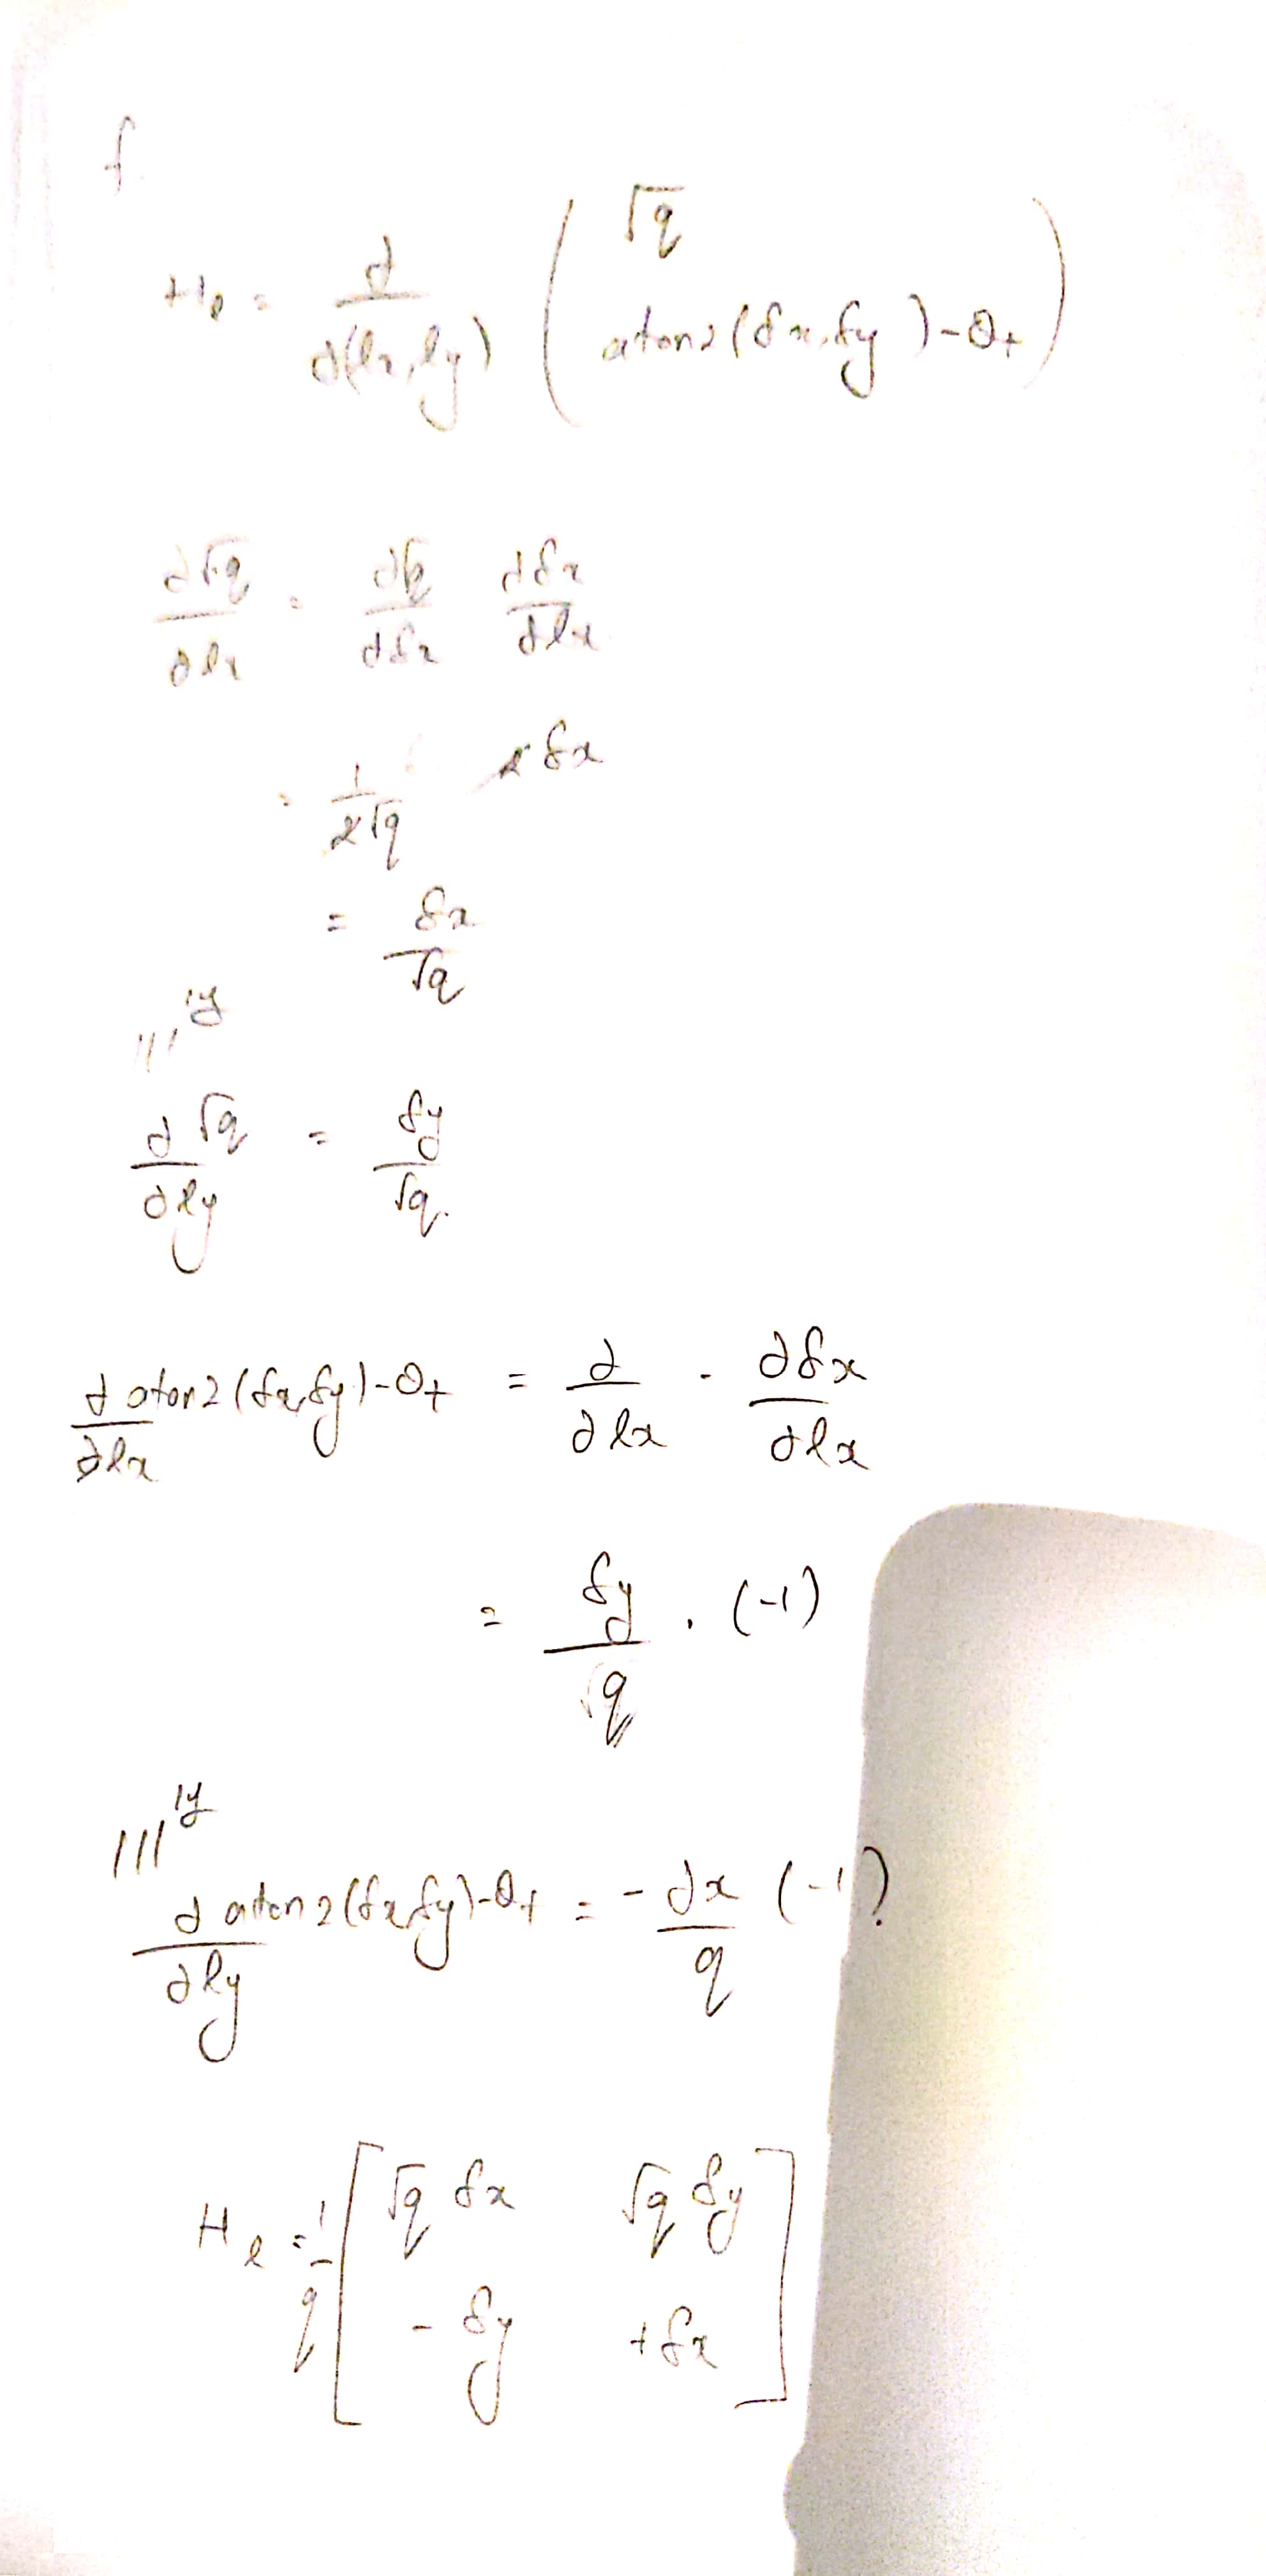 f.
H_ℓ = ∂/∂(ℓx, ℓy) ( √q
atan2(δx, δy) - θ_t )
∂√q/∂ℓx = ∂√q/∂δx ∂δx/∂ℓx
= 1/2√q 2δx
= δx/√q
|||ly
∂√q/∂ℓy = δy/√q.
∂/∂ℓx atan2(δx,δy)-θ_t = ∂/∂ℓx . ∂δx/∂ℓx
= δy/q . (-1)
|||ly
∂/∂ℓy atan2(δx,δy)-θ_t = -∂x/q (-1)
H_ℓ = 1/q [ √q δx √q δy
-δy +δx ]